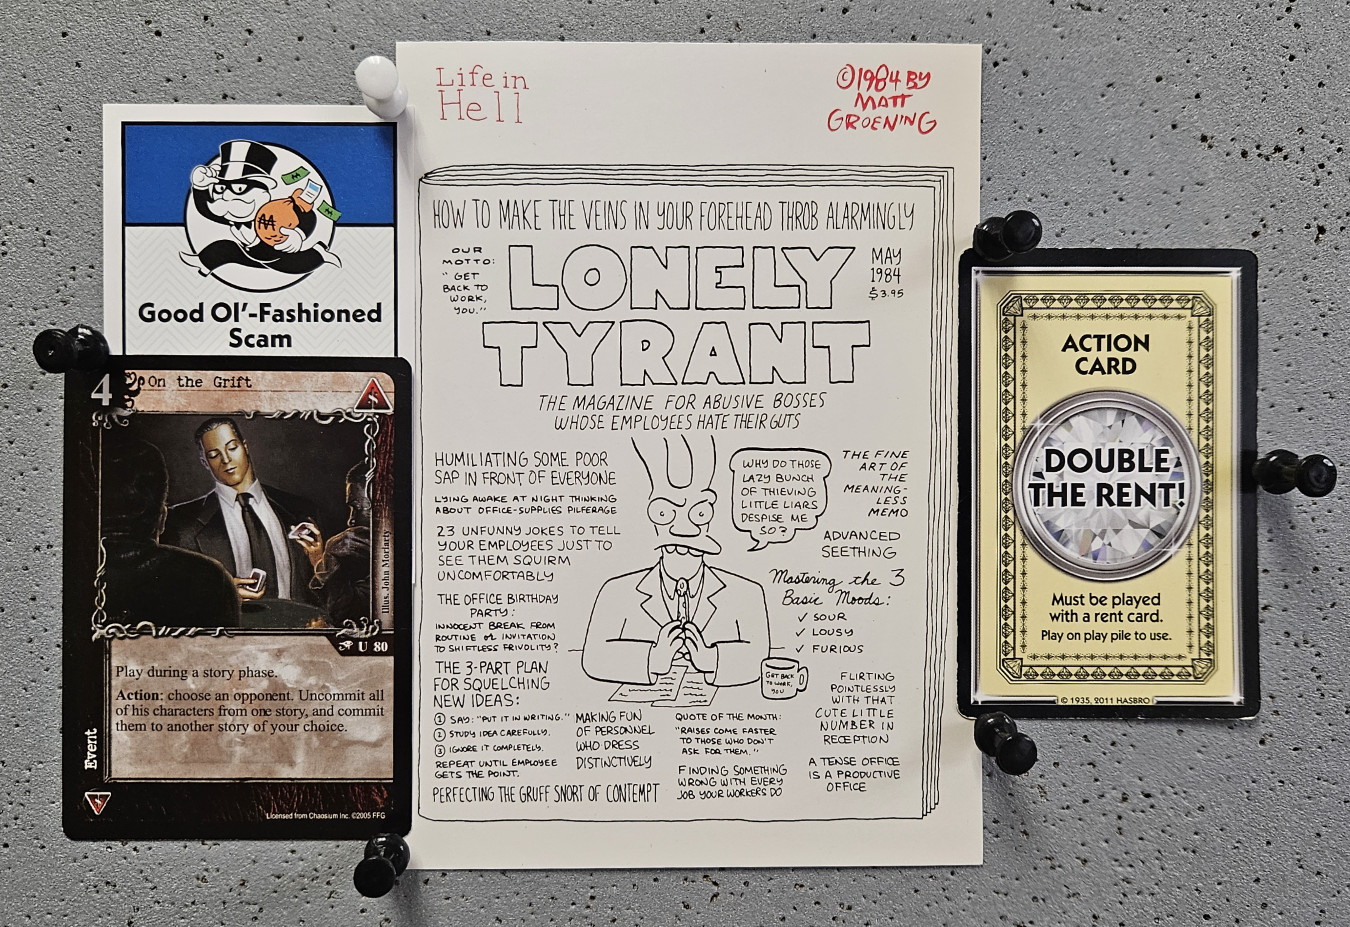 Good Ol'-Fashioned
Scam
4
On the Grift
Illus. John Moriarty
U 80
Play during a story phase.
Action: choose an opponent. Uncommit all
of his characters from one story, and commit
them to another story of your choice.
Event
Licensed from Chaosium Inc. ©2005 FFG
Life in
Hell
©1984 BY
MATT
GROENING
HOW TO MAKE THE VEINS IN YOUR FOREHEAD THROB ALARMINGLY
OUR
MOTTO:
"GET
BACK TO
WORK,
YOU."
LONELY
TYRANT
MAY
1984
$3.95
THE MAGAZINE FOR ABUSIVE BOSSES
WHOSE EMPLOYEES HATE THEIR GUTS
HUMILIATING SOME POOR
SAP IN FRONT OF EVERYONE
LYING AWAKE AT NIGHT THINKING
ABOUT OFFICE-SUPPLIES PILFERAGE
23 UNFUNNY JOKES TO TELL
YOUR EMPLOYEES JUST TO
SEE THEM SQUIRM
UNCOMFORTABLY
THE OFFICE BIRTHDAY
PARTY:
INNOCENT BREAK FROM
ROUTINE OR INVITATION
TO SHIFTLESS FRIVOLITY?
THE 3-PART PLAN
FOR SQUELCHING
NEW IDEAS:
① SAY: "PUT IT IN WRITING."
② STUDY IDEA CAREFULLY.
③ IGNORE IT COMPLETELY.
REPEAT UNTIL EMPLOYEE
GETS THE POINT.
PERFECTING THE GRUFF SNORT OF CONTEMPT
WHY DO THOSE
LAZY BUNCH
OF THIEVING
LITTLE LIARS
DESPISE ME
SO?
GET BACK
TO WORK,
YOU
MAKING FUN
OF PERSONNEL
WHO DRESS
DISTINCTIVELY
QUOTE OF THE MONTH:
"RAISES COME FASTER
TO THOSE WHO DON'T
ASK FOR THEM."
FINDING SOMETHING
WRONG WITH EVERY
JOB YOUR WORKERS DO
THE FINE
ART OF
THE
MEANING-
LESS
MEMO
ADVANCED
SEETHING
Mastering the 3
Basic Moods:
✓ SOUR
✓ LOUSY
✓ FURIOUS
FLIRTING
POINTLESSLY
WITH THAT
CUTE LITTLE
NUMBER IN
RECEPTION
A TENSE OFFICE
IS A PRODUCTIVE
OFFICE
ACTION
CARD
DOUBLE
THE RENT!
Must be played
with a rent card.
Play on play pile to use.
© 1935, 2011 HASBRO